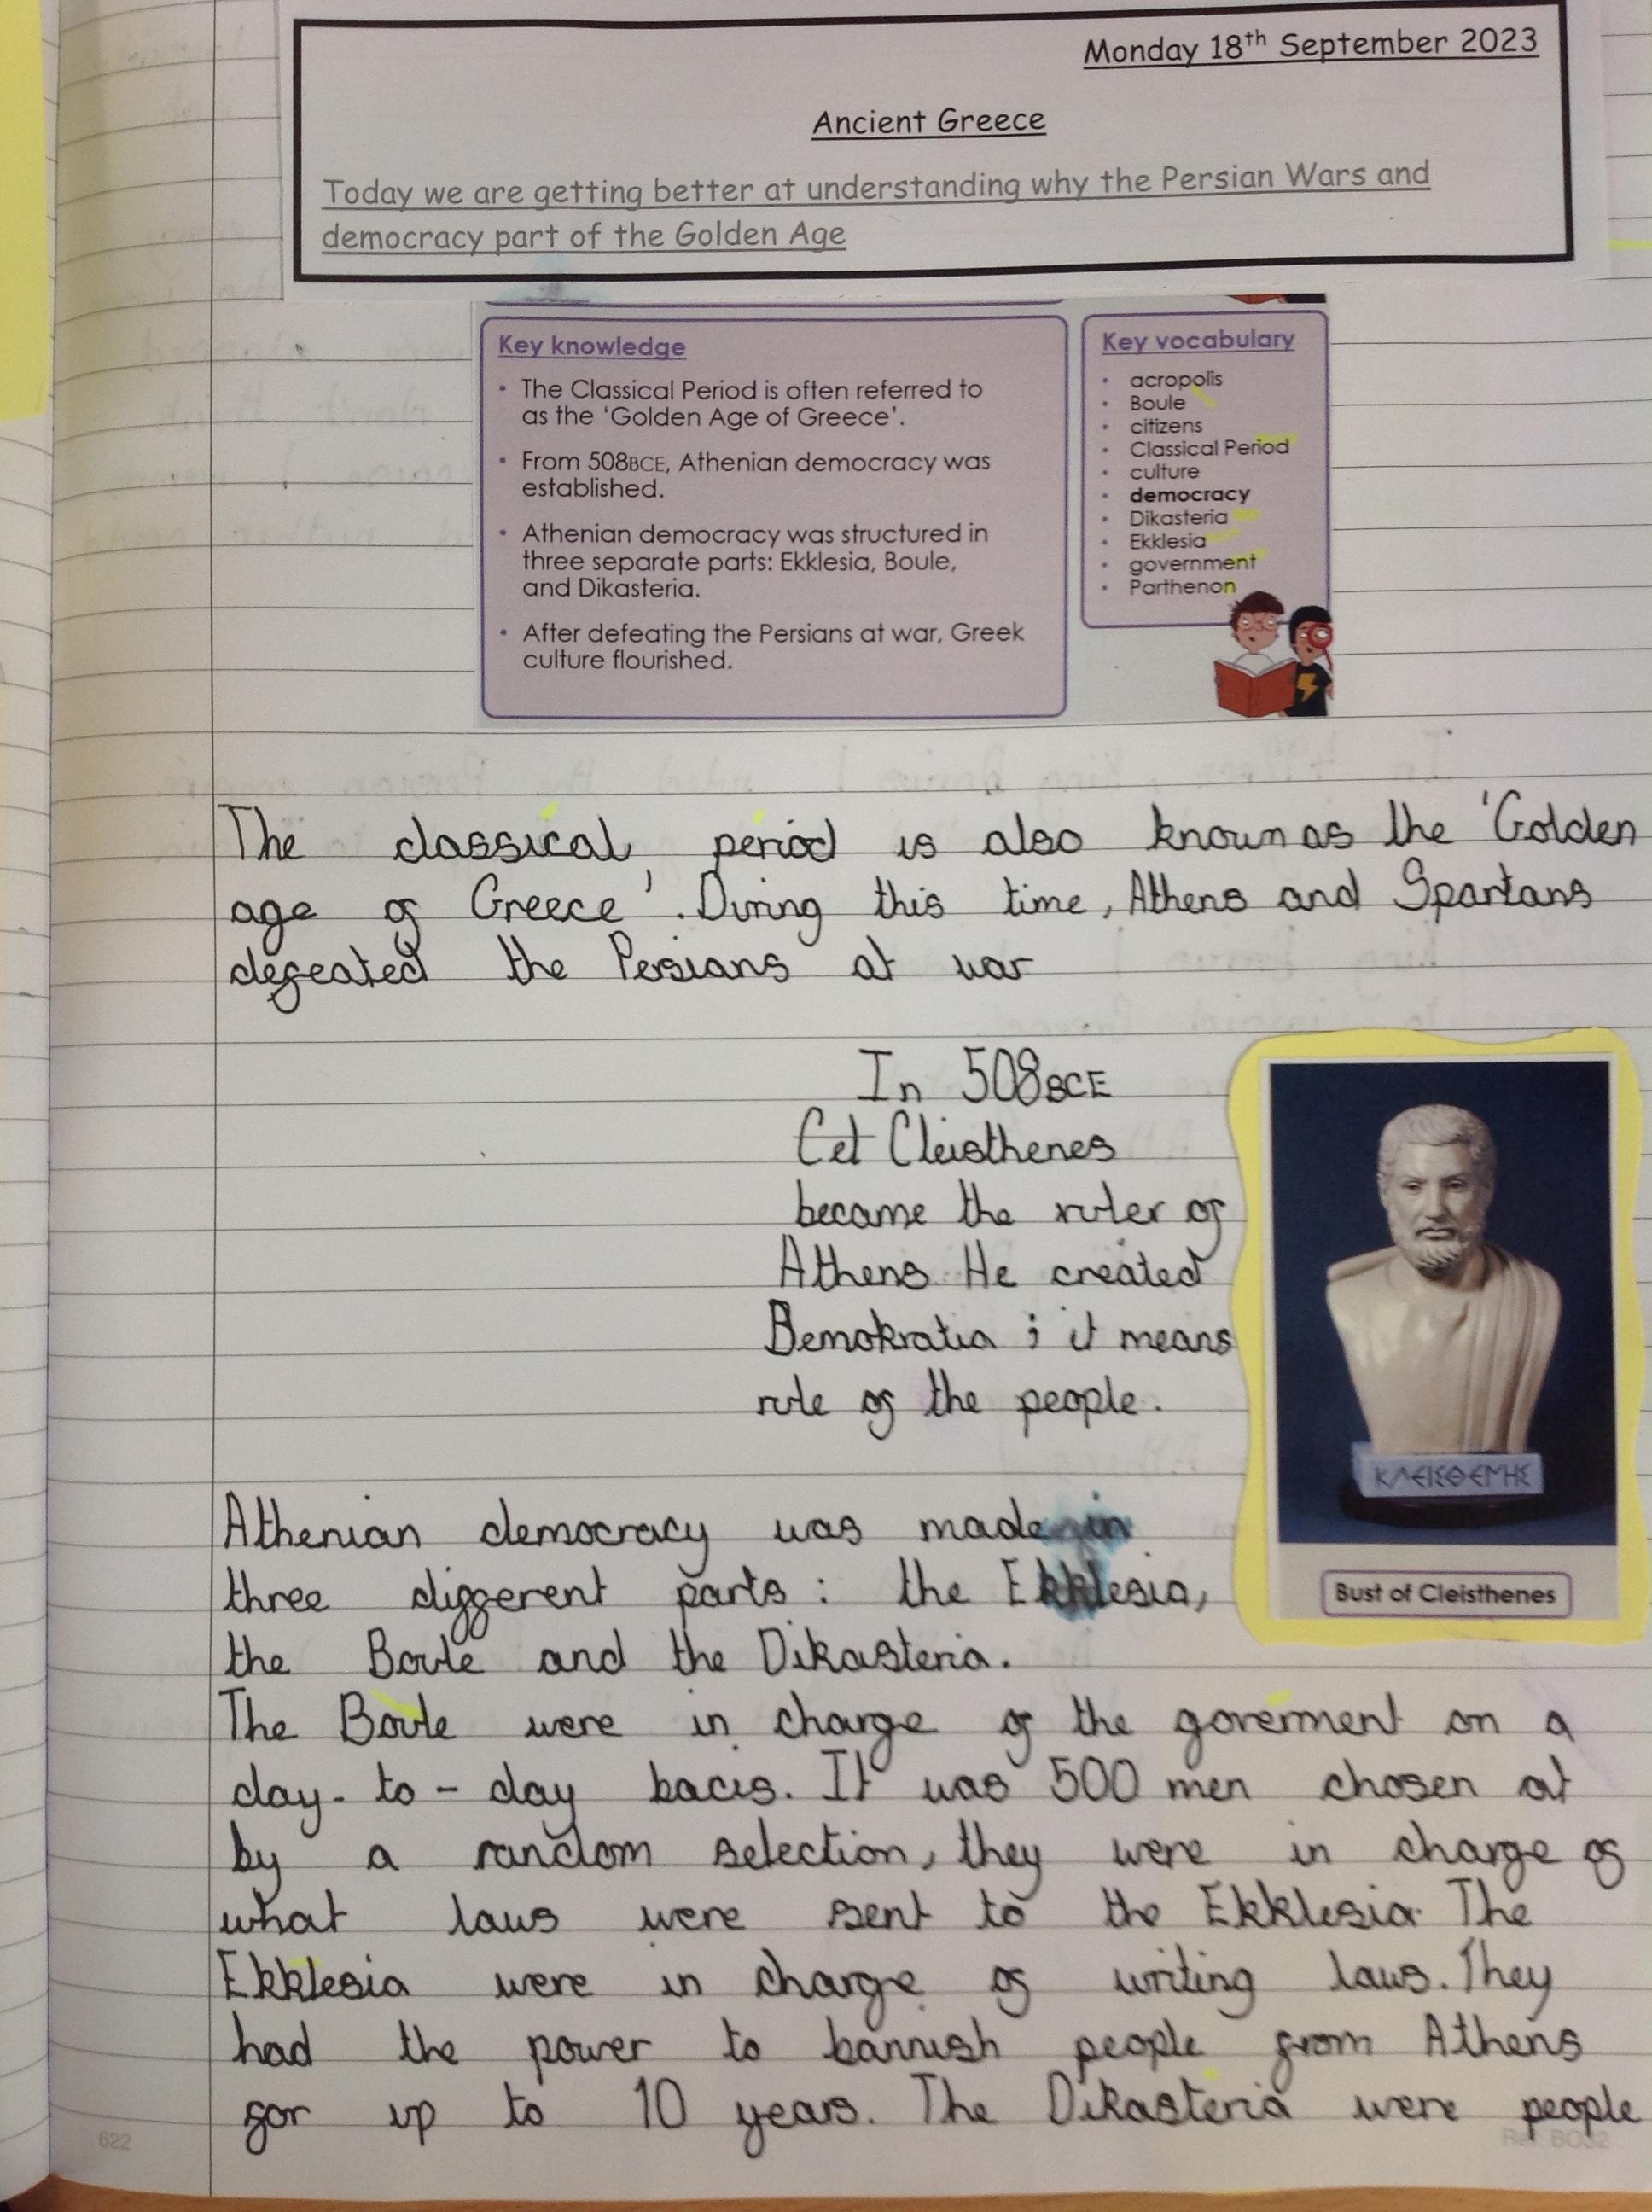 Monday 18th September 2023
Ancient Greece
Today we are getting better at understanding why the Persian Wars and
democracy part of the Golden Age
Key knowledge
• The Classical Period is often referred to
as the 'Golden Age of Greece'.
• From 508BCE, Athenian democracy was
established.
• Athenian democracy was structured in
three separate parts: Ekklesia, Boule,
and Dikasteria.
• After defeating the Persians at war, Greek
culture flourished.
Key vocabulary
• acropolis
• Boule
• citizens
• Classical Period
• culture
• democracy
• Dikasteria
• Ekklesia
• government
• Parthenon
The classical period is also known as the 'Golden
age of Greece'. During this time, Athens and Spartans
defeated the Persians at war
In 508BCE
Cet Cleisthenes
became the ruler of
Athens He created
Demokratia ; it means
rule of the people.
ΚΛΕΙΣΘΕΝΗΣ
Bust of Cleisthenes
Athenian democracy was made in
three different parts : the Ekklesia,
the Boule and the Dikasteria.
The Boule were in charge of the goverment on a
day-to-day bacis. It was 500 men chosen at
by a random selection, they were in charge of
what laws were sent to the Ekklesia. The
Ekklesia were in charge of writing laws. They
had the power to bannish people from Athens
for up to 10 years. The Dikasteria were people
622